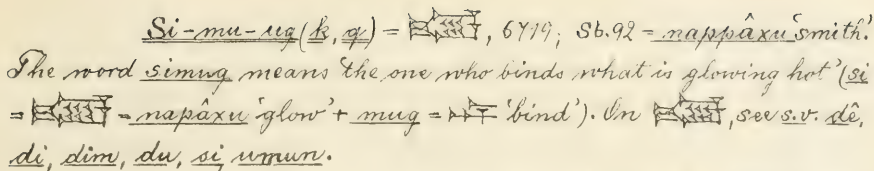 Si-mu-ug (k, q) = , 6719; Sb. 92 = nappâxu 'smith'.
The word simug means 'the one who binds what is glowing hot' (si
= = napâxu 'glow' + mug = 'bind'). On , see s.v. dê,
di, dim, du, si, umun.